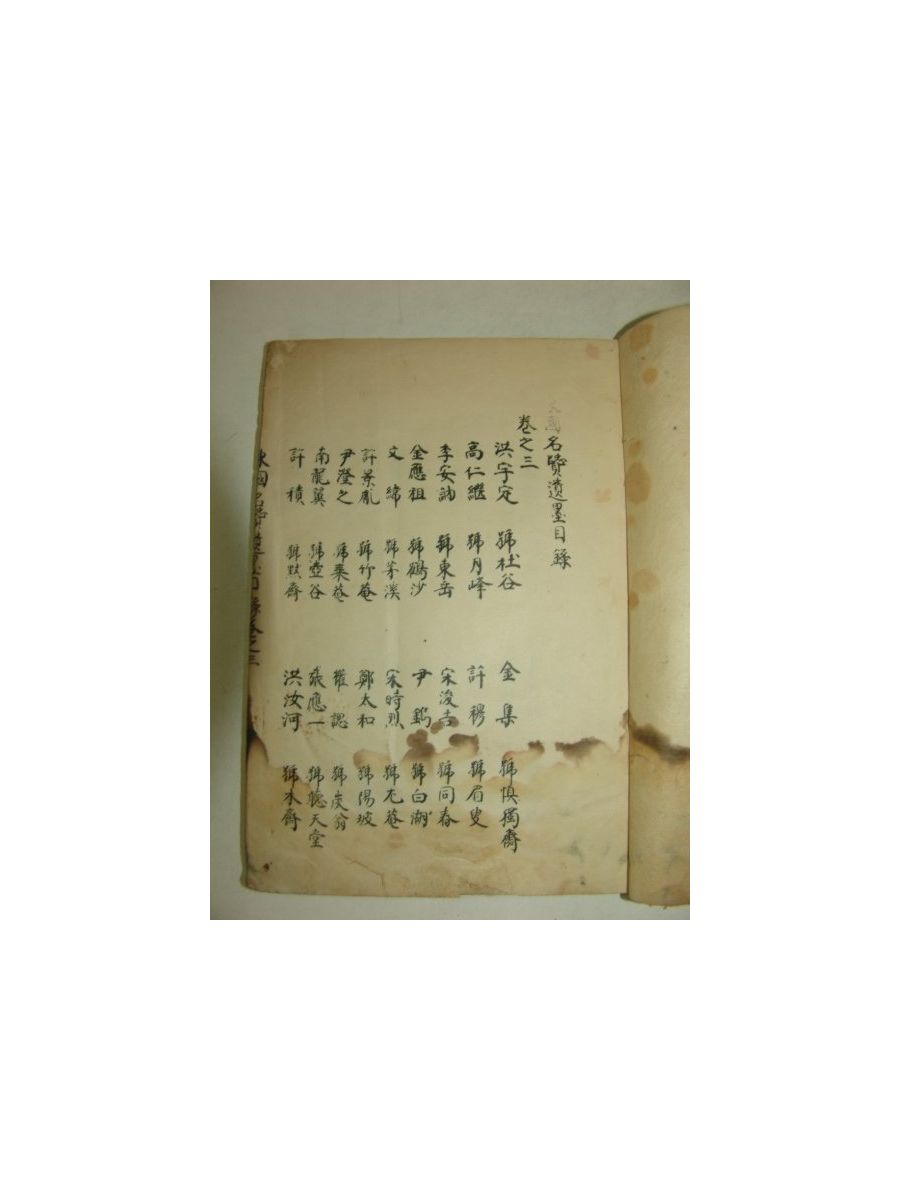 東國名賢遺墨目錄
卷之三
洪宇定 號杜谷 金集 號愼獨齋
高仁繼 號月峰 許穆 號眉叟
李安訥 號東岳 宋浚吉 號同春
金應祖 號鶴沙 尹鑴 號白湖
文緯 號茅溪 宋時烈 號尤菴
許景胤 號竹菴 鄭太和 號陽坡
尹澄之 號棄菴 權諰 號炭翁
南龍翼 號壺谷 張應一 號聽天堂
許積 號默齋 洪汝河 號木齋
東國名賢遺墨目錄卷之三